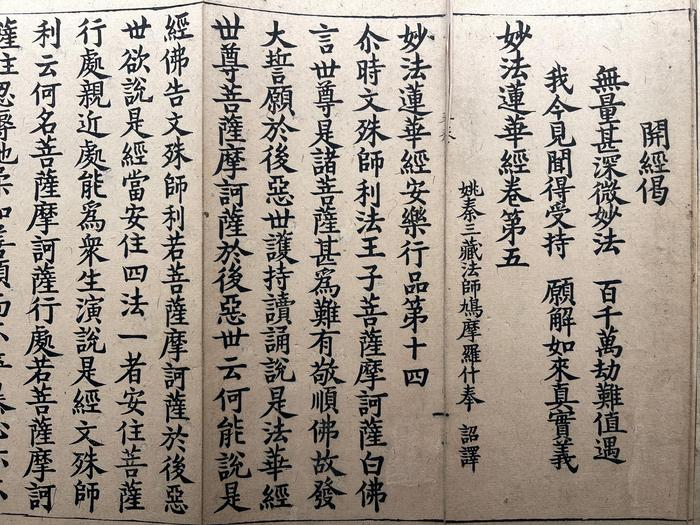 開經偈
無量甚深微妙法 百千萬劫難值遇
我今見聞得受持 願解如來真實義
妙法蓮華經卷第五
姚秦三藏法師鳩摩羅什奉 詔譯
妙法蓮華經安樂行品第十四
尒時文殊師利法王子菩薩摩訶薩白佛
言世尊是諸菩薩甚爲難有敬順佛故發
大誓願於後惡世護持讀誦說是法華經
世尊菩薩摩訶薩於後惡世云何能說是
經佛告文殊師利若菩薩摩訶薩於後惡
世欲說是經當安住四法一者安住菩薩
行處親近處能爲衆生演說是經文殊師
利云何名菩薩摩訶薩行處若菩薩摩訶
薩住忍辱地柔和善順而不